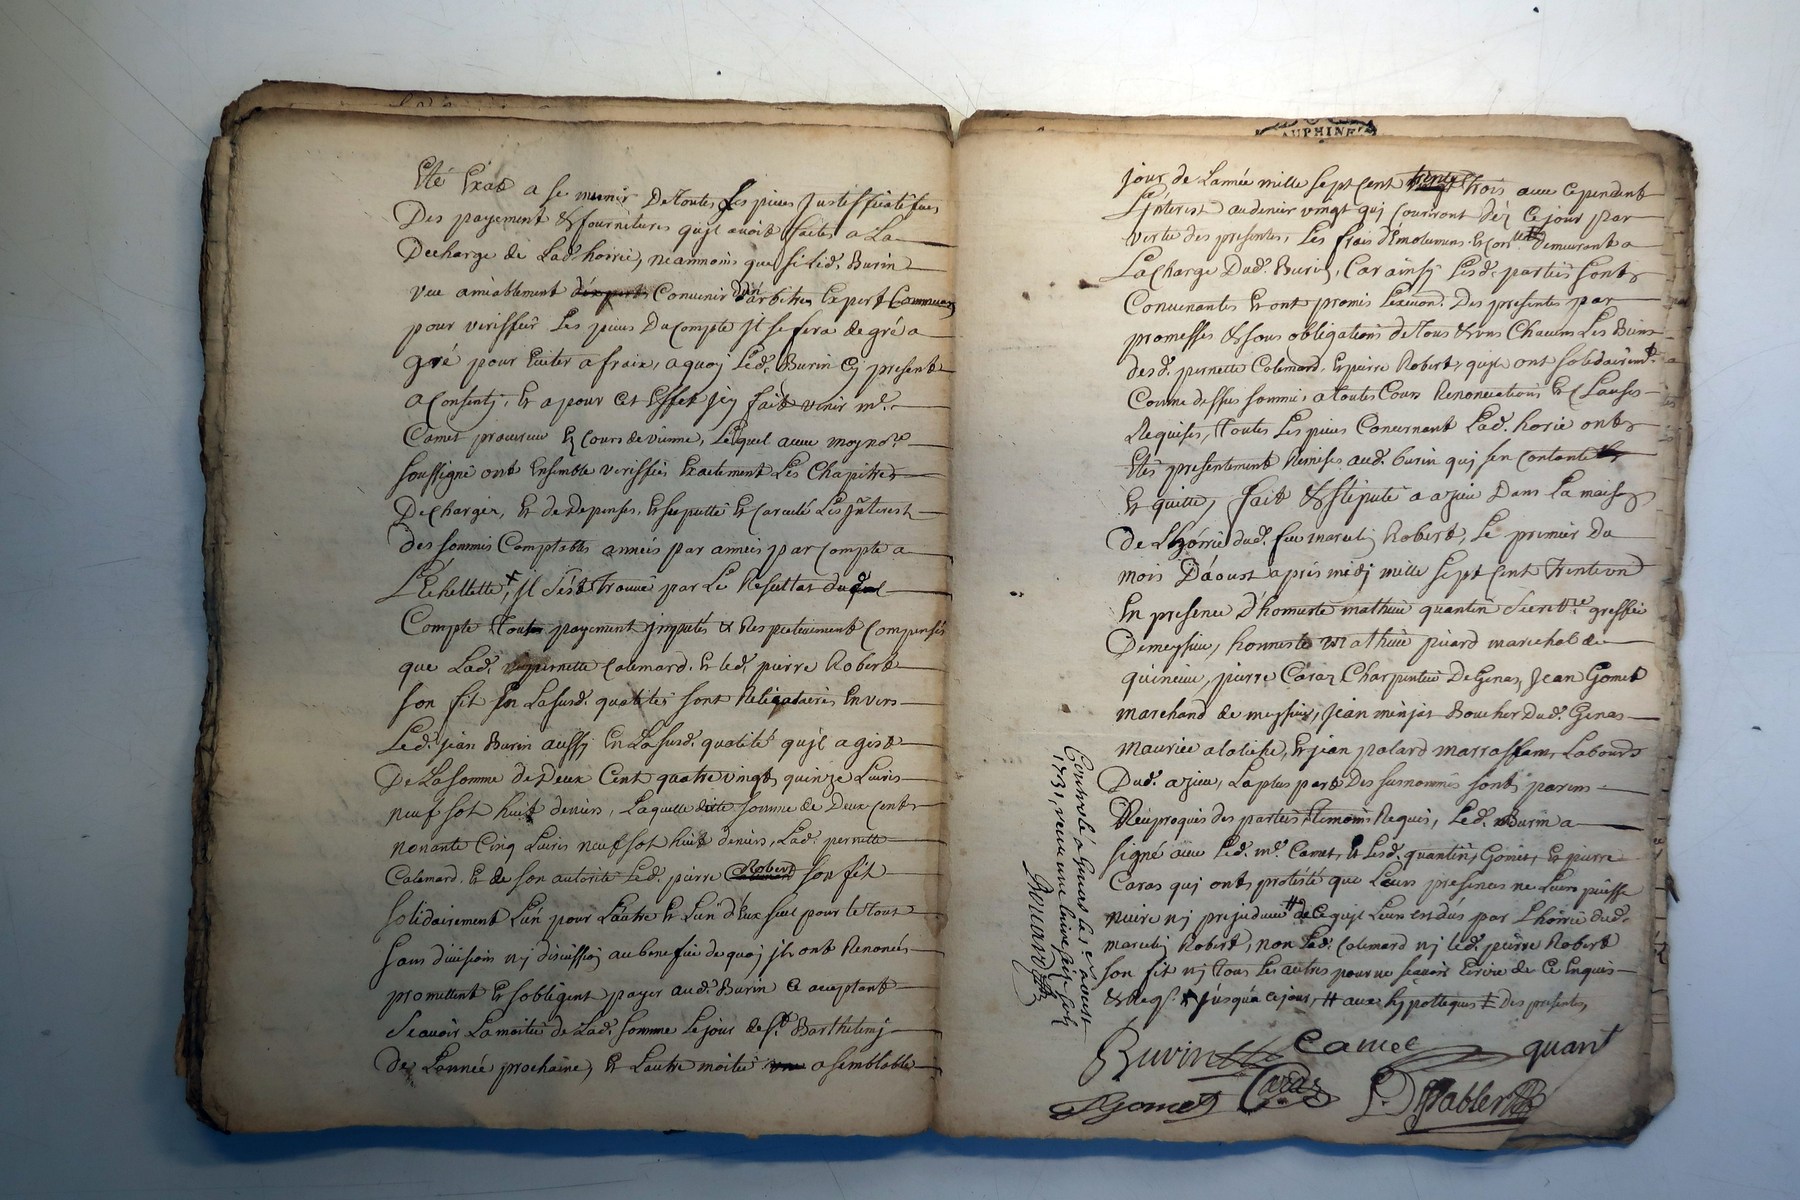 Eté Exat a se munir De toutes Les pieces Justifficatifves
Des payement & fournitures quil avoit faites a La
Decharge de Lad. hoirie, neanmoins que si Led. Burin
veu amiablement Convenir d'un arbitre Expert Commun
pour veriffier Les pieces Du Compte Il se fera de gré a
gré pour Eviter a fraix, a quoy Led. Burin Cy present
a Consenty, Et a pour Cet Effet Icy fait venir me.
Camet procureur Es Cours de vienne, Lequel avec moy nore.
soussigné ont Ensemble veriffiés Exactement Les Chapitres
De Charges, Et de depenses, Et supputté Et Carculé Les Interest
des sommes Comptables années par années par Compte a
L'Echellette, Il s'est trouvé par Le Resultat dud.
Compte Tous payement Imputés & Respectivement Compensés
que Lad. pernette Colemard, Et led. pierre Robert
son fit En La susd. qualités sont Reliquataires Envers
Led. Jean Burin aussy En La susd. qualité quil agist
De La somme de Deux Cent quatre vingt quinze Livres
neuf sol huit deniers, Laquelle ditte somme de Deux Cents
nonante Cinq Livres neuf sol huit deniers, Lad. pernette
Colemard, Et de son autorité Led. pierre Robert son fit
solidairement L'un pour L'autre Et L'un d'Eux seul pour le tout
sans division ny discussion au benefice de quoy ils ont Renoncés
promettent Et s'obligent payer aud. Burin Ce acceptant
Scavoir La moitié de Lad. somme Le jour de St. Barthelemy
de L'année prochaine, Et L'autre moitié a semblable
AUPHINE
jour de L'année mille sept Cent trente trois avec Cependent
L'Interest au denier vingt qui Courront déz Ce jour par
vertu des presentes, Les frais d'Emolumens & Conlle. demeurant a
La Charge Dud. Burin, Car ainsy Lesd. parties sont
Convenantes Et ont promis L'execuon. Des presentes par
promesses & sous obligations de tous & uns Chacuns Les Biens
desd. pernette Colemard, Et pierre Robert, quils ont solidairemt.
Comme dessus soumis, a toutes Cours Renonciations Et Clauses
Requises, Toutes Les pieces Concernant Lad. horie ont
Etés presentement Remises aud. burin qui s'en Contante
Et quitte, fait & stipulé a azieu Dans La maison
de L'hoirie dud. feu marcelin Robert, Le premier Du
mois D'aoust apres midy mille sept Cent trente un
En presence d'honneste mathieu quantin Secretre. greffier
De meyssieu, honneste Mathieu picard marechal de
quincieu, pierre Caraz Charpentier De Genas, Jean Gomet
marchand de meyssieu, Jean minjat Boucher Dud. Genas
Maurice alatiche, Et jean palard marrossam, Labourds
Dud. azieu, La plus part Des surnommés sont parens
Reciproques des parties Temoins Requis, Led. Burin a
signé avec Led. me. Camet, Et Lesd. quantin, Gomet, Et pierre
Caras qui ont protesté que Leurs presences ne Leurs puisse
nuire ny prejudicier de Ce quil Leur Est dûs par L'hoirie dud.
marcelin Robert, non Lad. Colemard ny led. pierre Robert
son fit ny tous Les autres pour ne scavoir Ecrire de Ce Enquis
& Reqs. jusqu'a Ce jour, # aux hypotteques ‡ des presentes
Controlé a Genas Le 1er aoust
1731, receu une livre seize sols
Burin Camet quant
JGomet Caraz